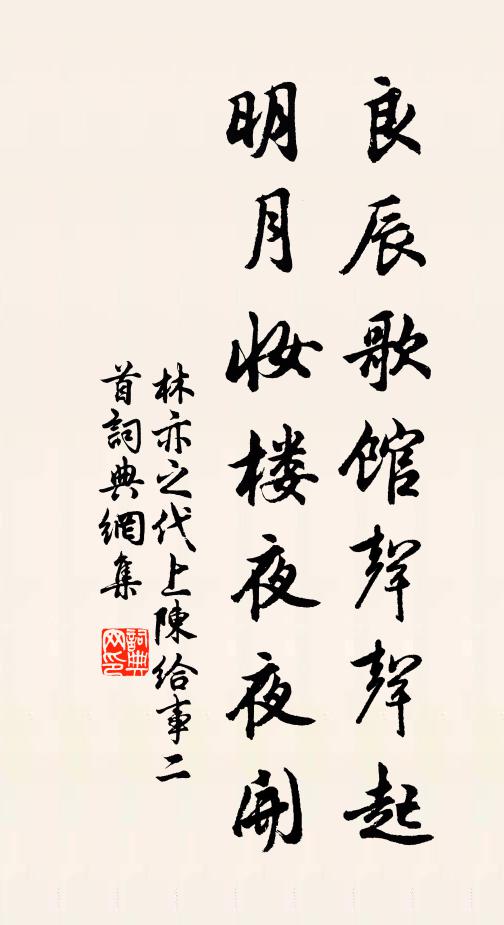 良辰歌馆聲聲起
明月妆楼夜夜開
林亦之代上陳給事二
首詞典網集
詞典
网印